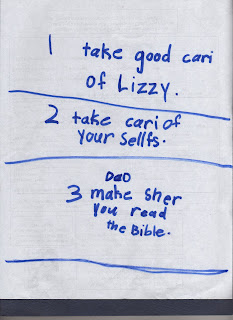 1 take good cari
of Lizzy.
2 take cari of
your sellfs.
DaD
3 make sher
you read
the Bible.